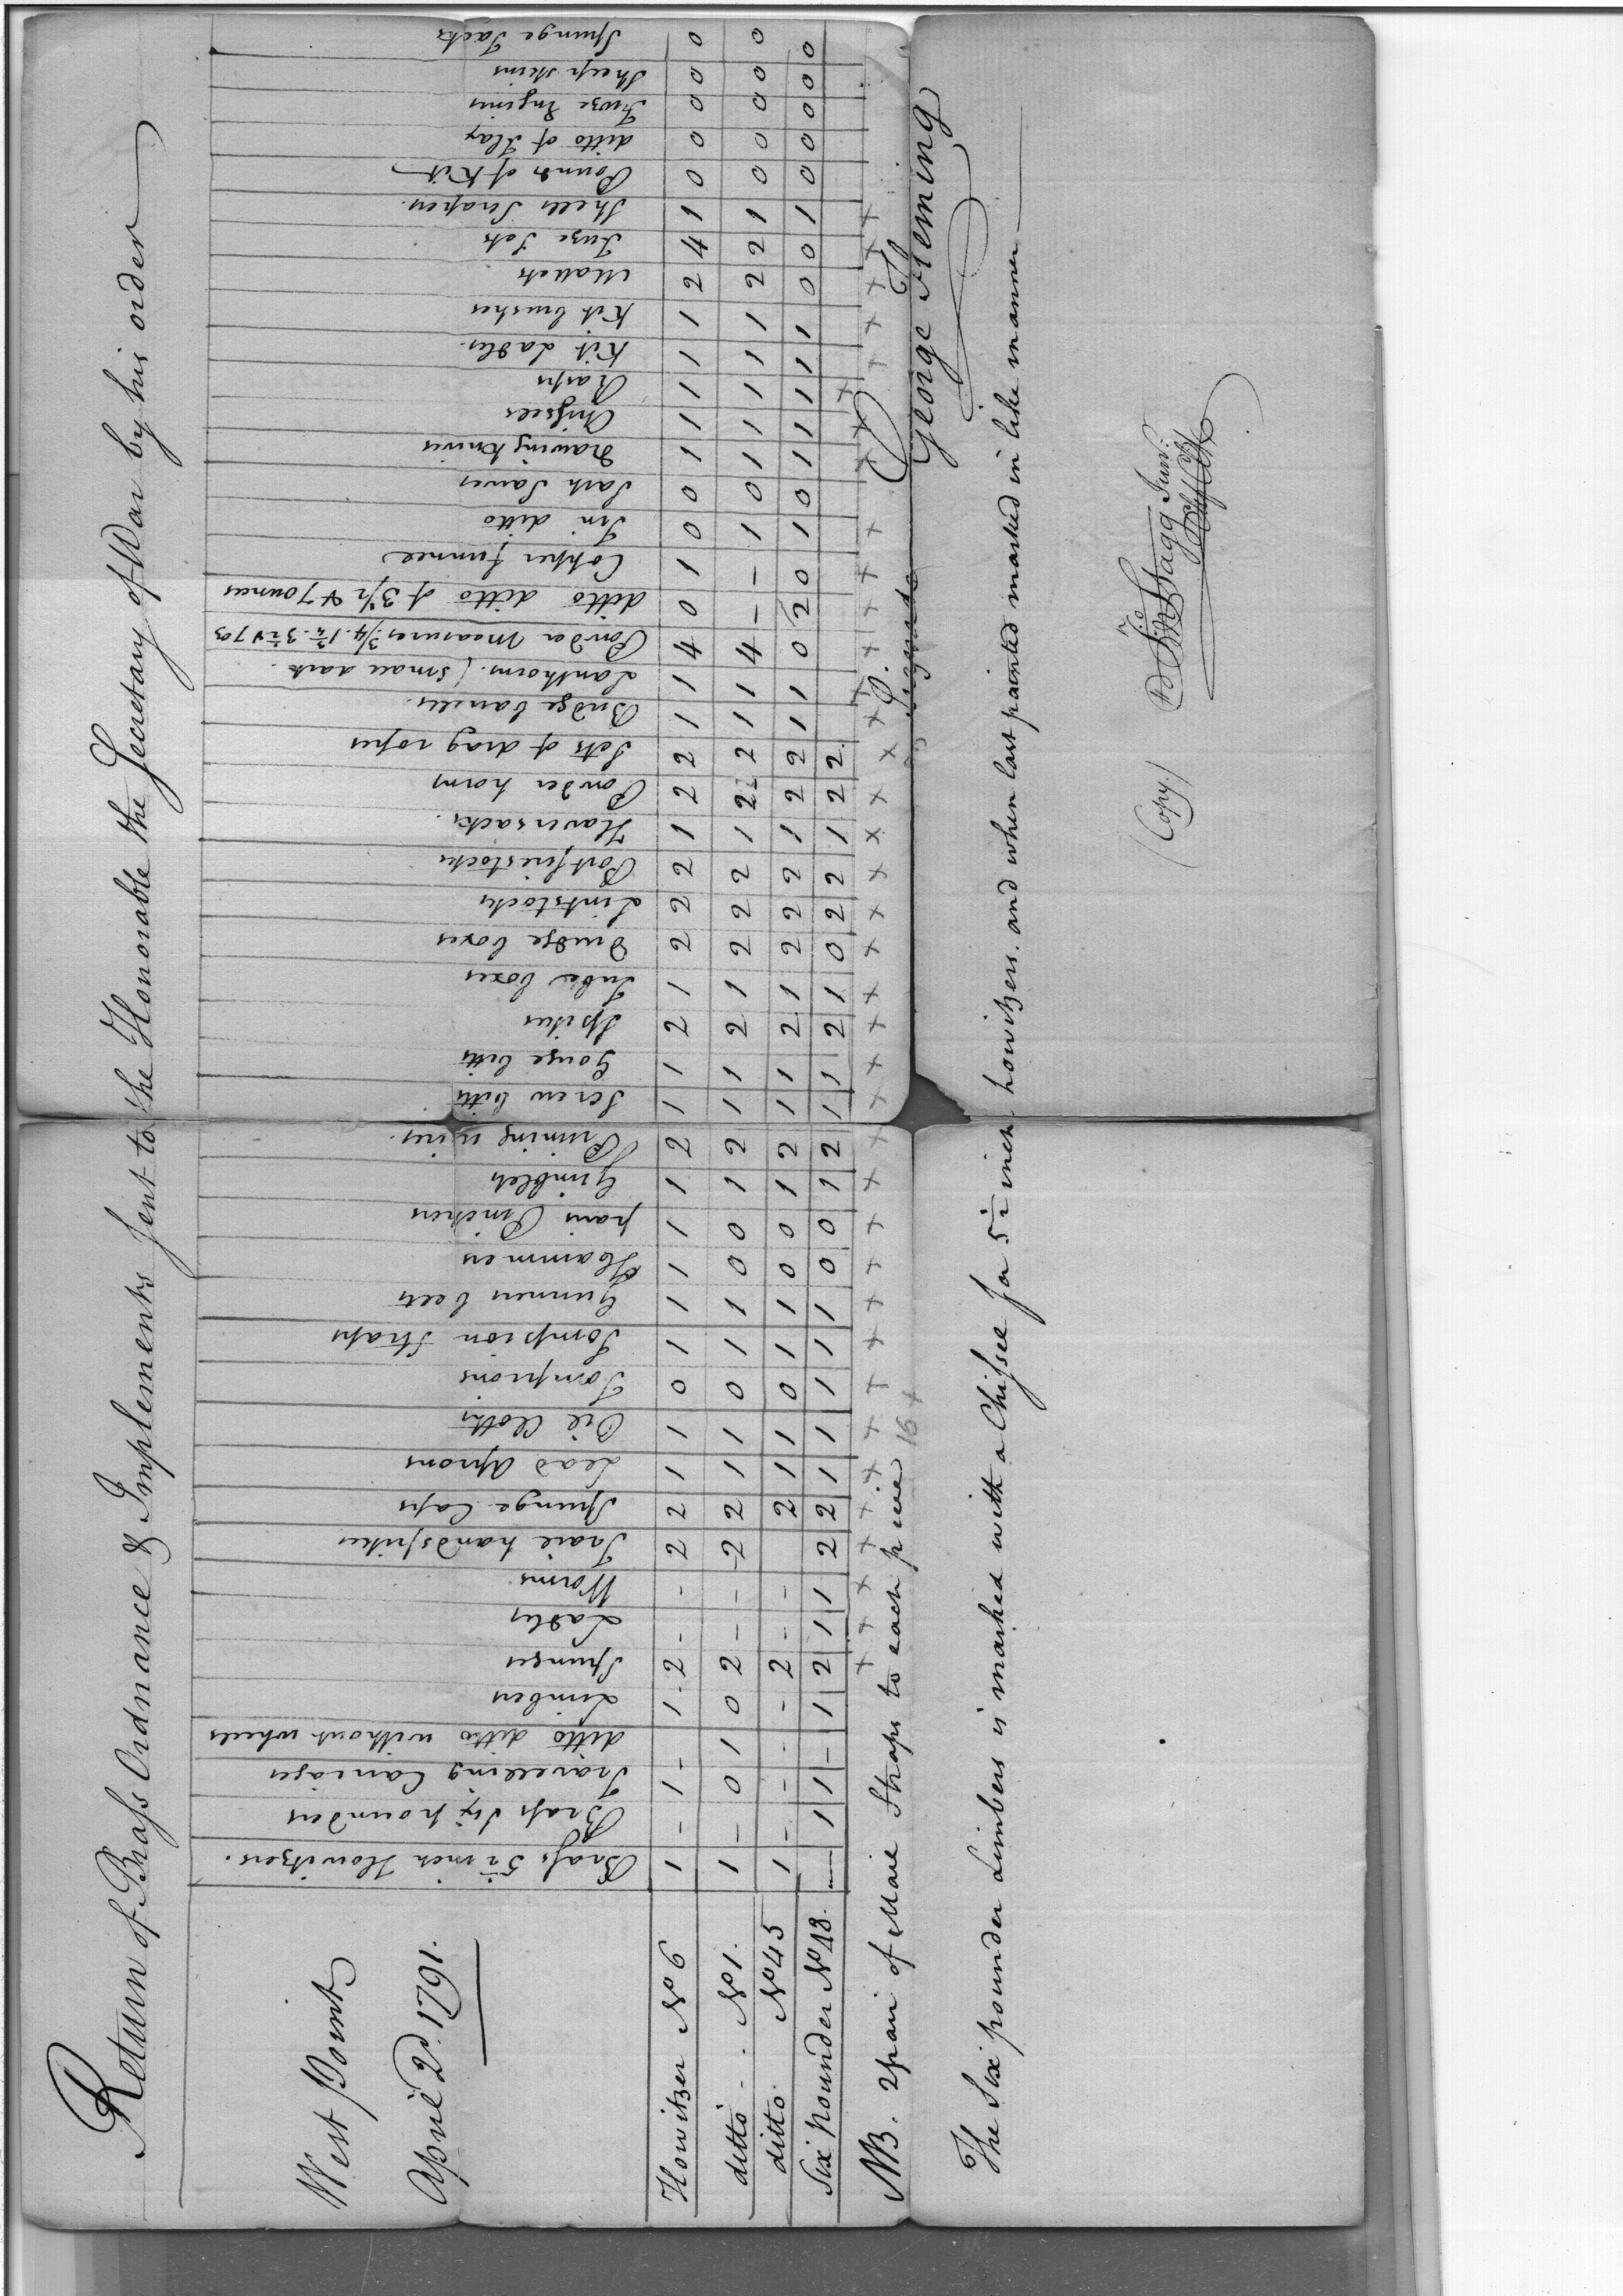 Return of Brass Ordnance & Implements Sent to the Honorable the Secretary of War by his order
West Point
April 2d. 1791.
Brass 5½ inch Howitzers.
Brass Six pounders
Travelling Carriages
ditto ditto without wheels
Limbers
Spunges
Ladles
Worms
Trail handspikes
Spunge Caps
Lead Aprons
Oil Cloths
Tompions
Tompion Straps
Gunners belts
Hammers
pairs Pinchers
Gimblets
Priming wires.
Screw bitts
Gouge bitts
Spikes
Tube boxes
Drudge boxes
Linkstocks
Portfirestocks
Haversacks.
Powder horns
Sets of drag ropes
Budge barrells.
Lanthorns. (small dark.
Powder Measures ¾. 1¾. 3½ & 7 oz
ditto ditto of 3½ & 7 ounces
Copper funnel
Tin ditto
Sash Sawes
Drawing knives
Chissels
Rasps
Kit Ladles.
Kit brushes
Mallets
Fuze Sets
Shell Scrapers.
Pounds of Kit
ditto of Flax
Fuze Engines
Sheep skins
Spunge Tacks
Howitzer No 6 1 - 1 - 1 2 - - 2 2 1 1 0 1 1 1 1 1 2 1 1 2 1 2 2 2 1 2 2 1 1 4 0 1 0 0 1 1 1 1 1 2 4 1 0 0 0 0 0
ditto No 1. 1 - 0 1 0 2 - - 2 2 1 1 0 1 1 0 0 1 2 1 1 2 1 2 2 2 1 2 2 1 1 4 - - 1 0 1 1 1 1 1 2 2 1 0 0 0 0 0
ditto No 45 1 - - - - 2 - - 2 1 1 0 1 1 0 0 1 2 1 1 2 1 2 2 2 1 2 2 1 1 0 2 0 1 0 1 1 1 1 1 0 0 1 0 0 0 0 0
Six Pounder No 48. - 1 1 - 1 2 1 1 2 2 1 1 1 1 1 0 0 1 2 1 1 2 1 0 2 2 1 2 2
NB. 2 pair of Male Straps to each piece 16 +
Signed
George Fleming
The Six pounder Limbers is marked with a Chissel for 5½ inch howitzers. and when last painted marked in like manner
(Copy) Jno Stagg Junr.
Chf Clk